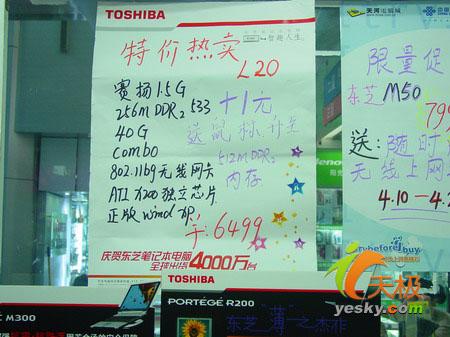 TOSHIBA
特价热卖
L20
赛扬1.5G
256m DDR2 533
40G
combo
802.11b9无线网卡
ATI X200独立芯片
正版
+1元
送鼠标
512m DDR2
内存
¥:6499
庆贺东芝笔记本电脑
全球出货4000万台
TOSHIBA
天河电脑城
限量促
东芝 M50
799
送:随时
无线上网
4.10-4.
lenovo
try before buy
M300
PORTÉGÉ R200
东芝 薄之杰作
天极
yesky.com